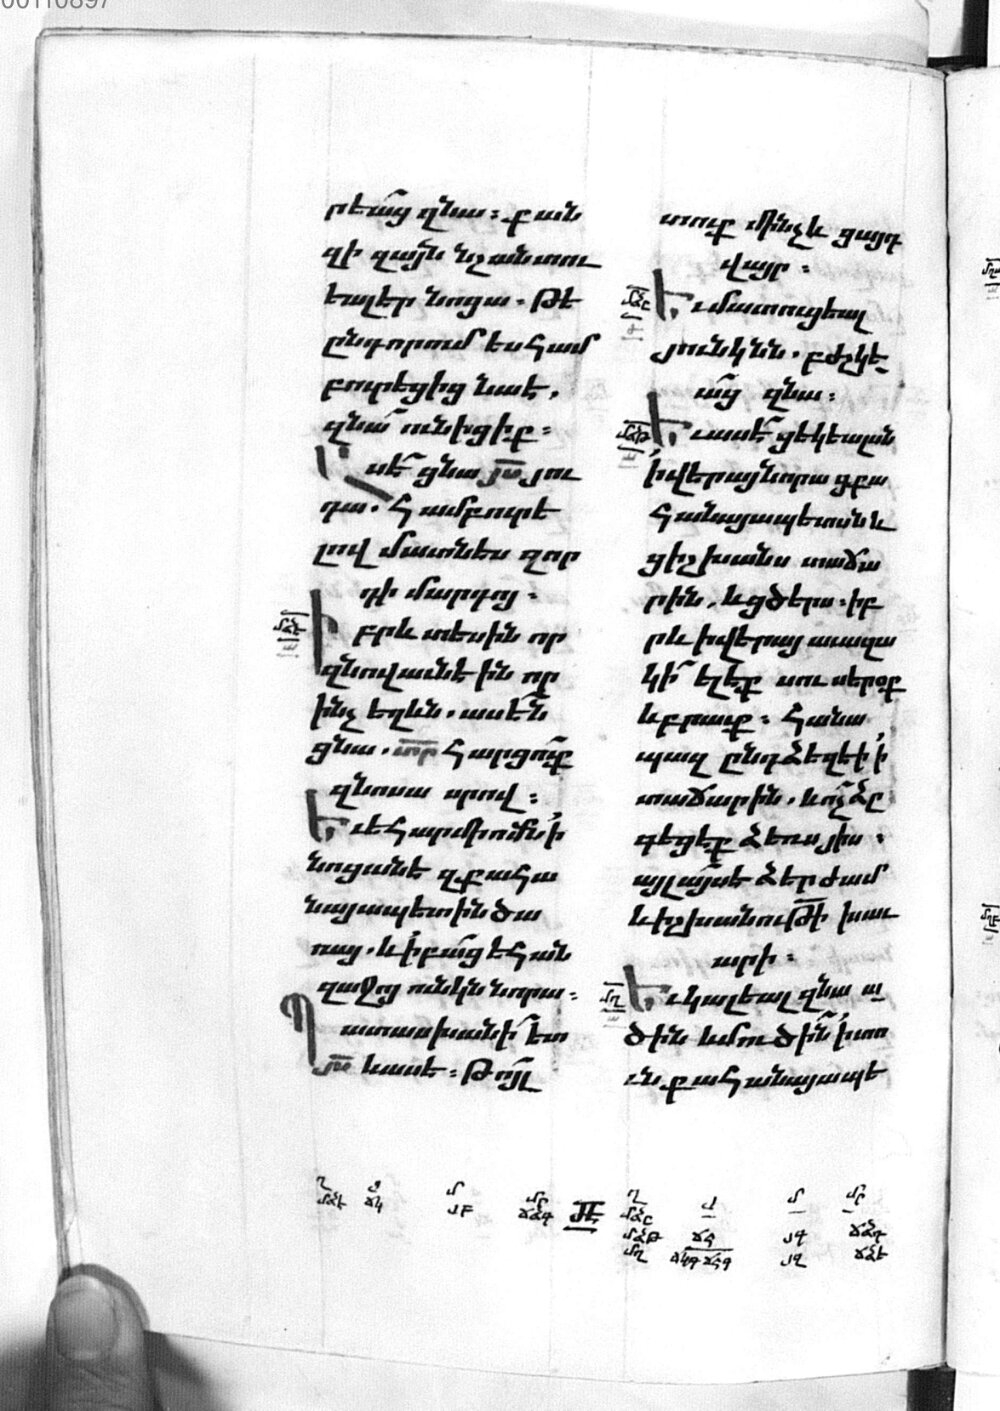 00110897
րեա՛ց զնա։ քան
զի զա՛յն նշանտու
եալ էր նոցա. թէ
ընդ որում ես համ
բուրեցից նա է,
զնա՛ ունիջիք։
Ասէ՛ ցնա յս յու
դա. համբուրե
լով մատնես զոր
դի մարդոյ։
Իբրև տեսին որ
զնովանն էին որ
ինչ եղևն. ասե՛ն
ցնա. տր հարցո՛ւք
զնոսա սրով։
Եւ եհար մի ոմն ՚ի
նոցանէ զքահա
նայապետին ծա
ռայ. և ՚ի բա՛ց եհան
զաջոյ ունկն նորա։
Պատասխանի՛ ետ
յս և ասէ։ Թո՛յլ
տուք մինչև ցայդ
վայր։
Եւ մատուցեալ
յունկնն. բժշկե
ա՛ց զնա։
Եւ ասէ՛ ցեկեալսն
՚ի վերայ նորա ցքա
հանայապետսն և
ցիշխանս տաճա
րին. և ցծերս. իբ
րև ՚ի վերայ աւազա
կի՛ ելէք սուսերօք
և բրօք։ հանա
պազ ընդ ձեզ էի ՚ի
տաճարին. և ո՛չ ձը
գեցէք ձեռս յիս։
այլ ա՛յս է ձեր ժամ
և իշխանութի խաւ
արի։
Եւ կալեալ զնա ա
ծին և մուծի՛ն ՚ի տու
ն քահանայապե